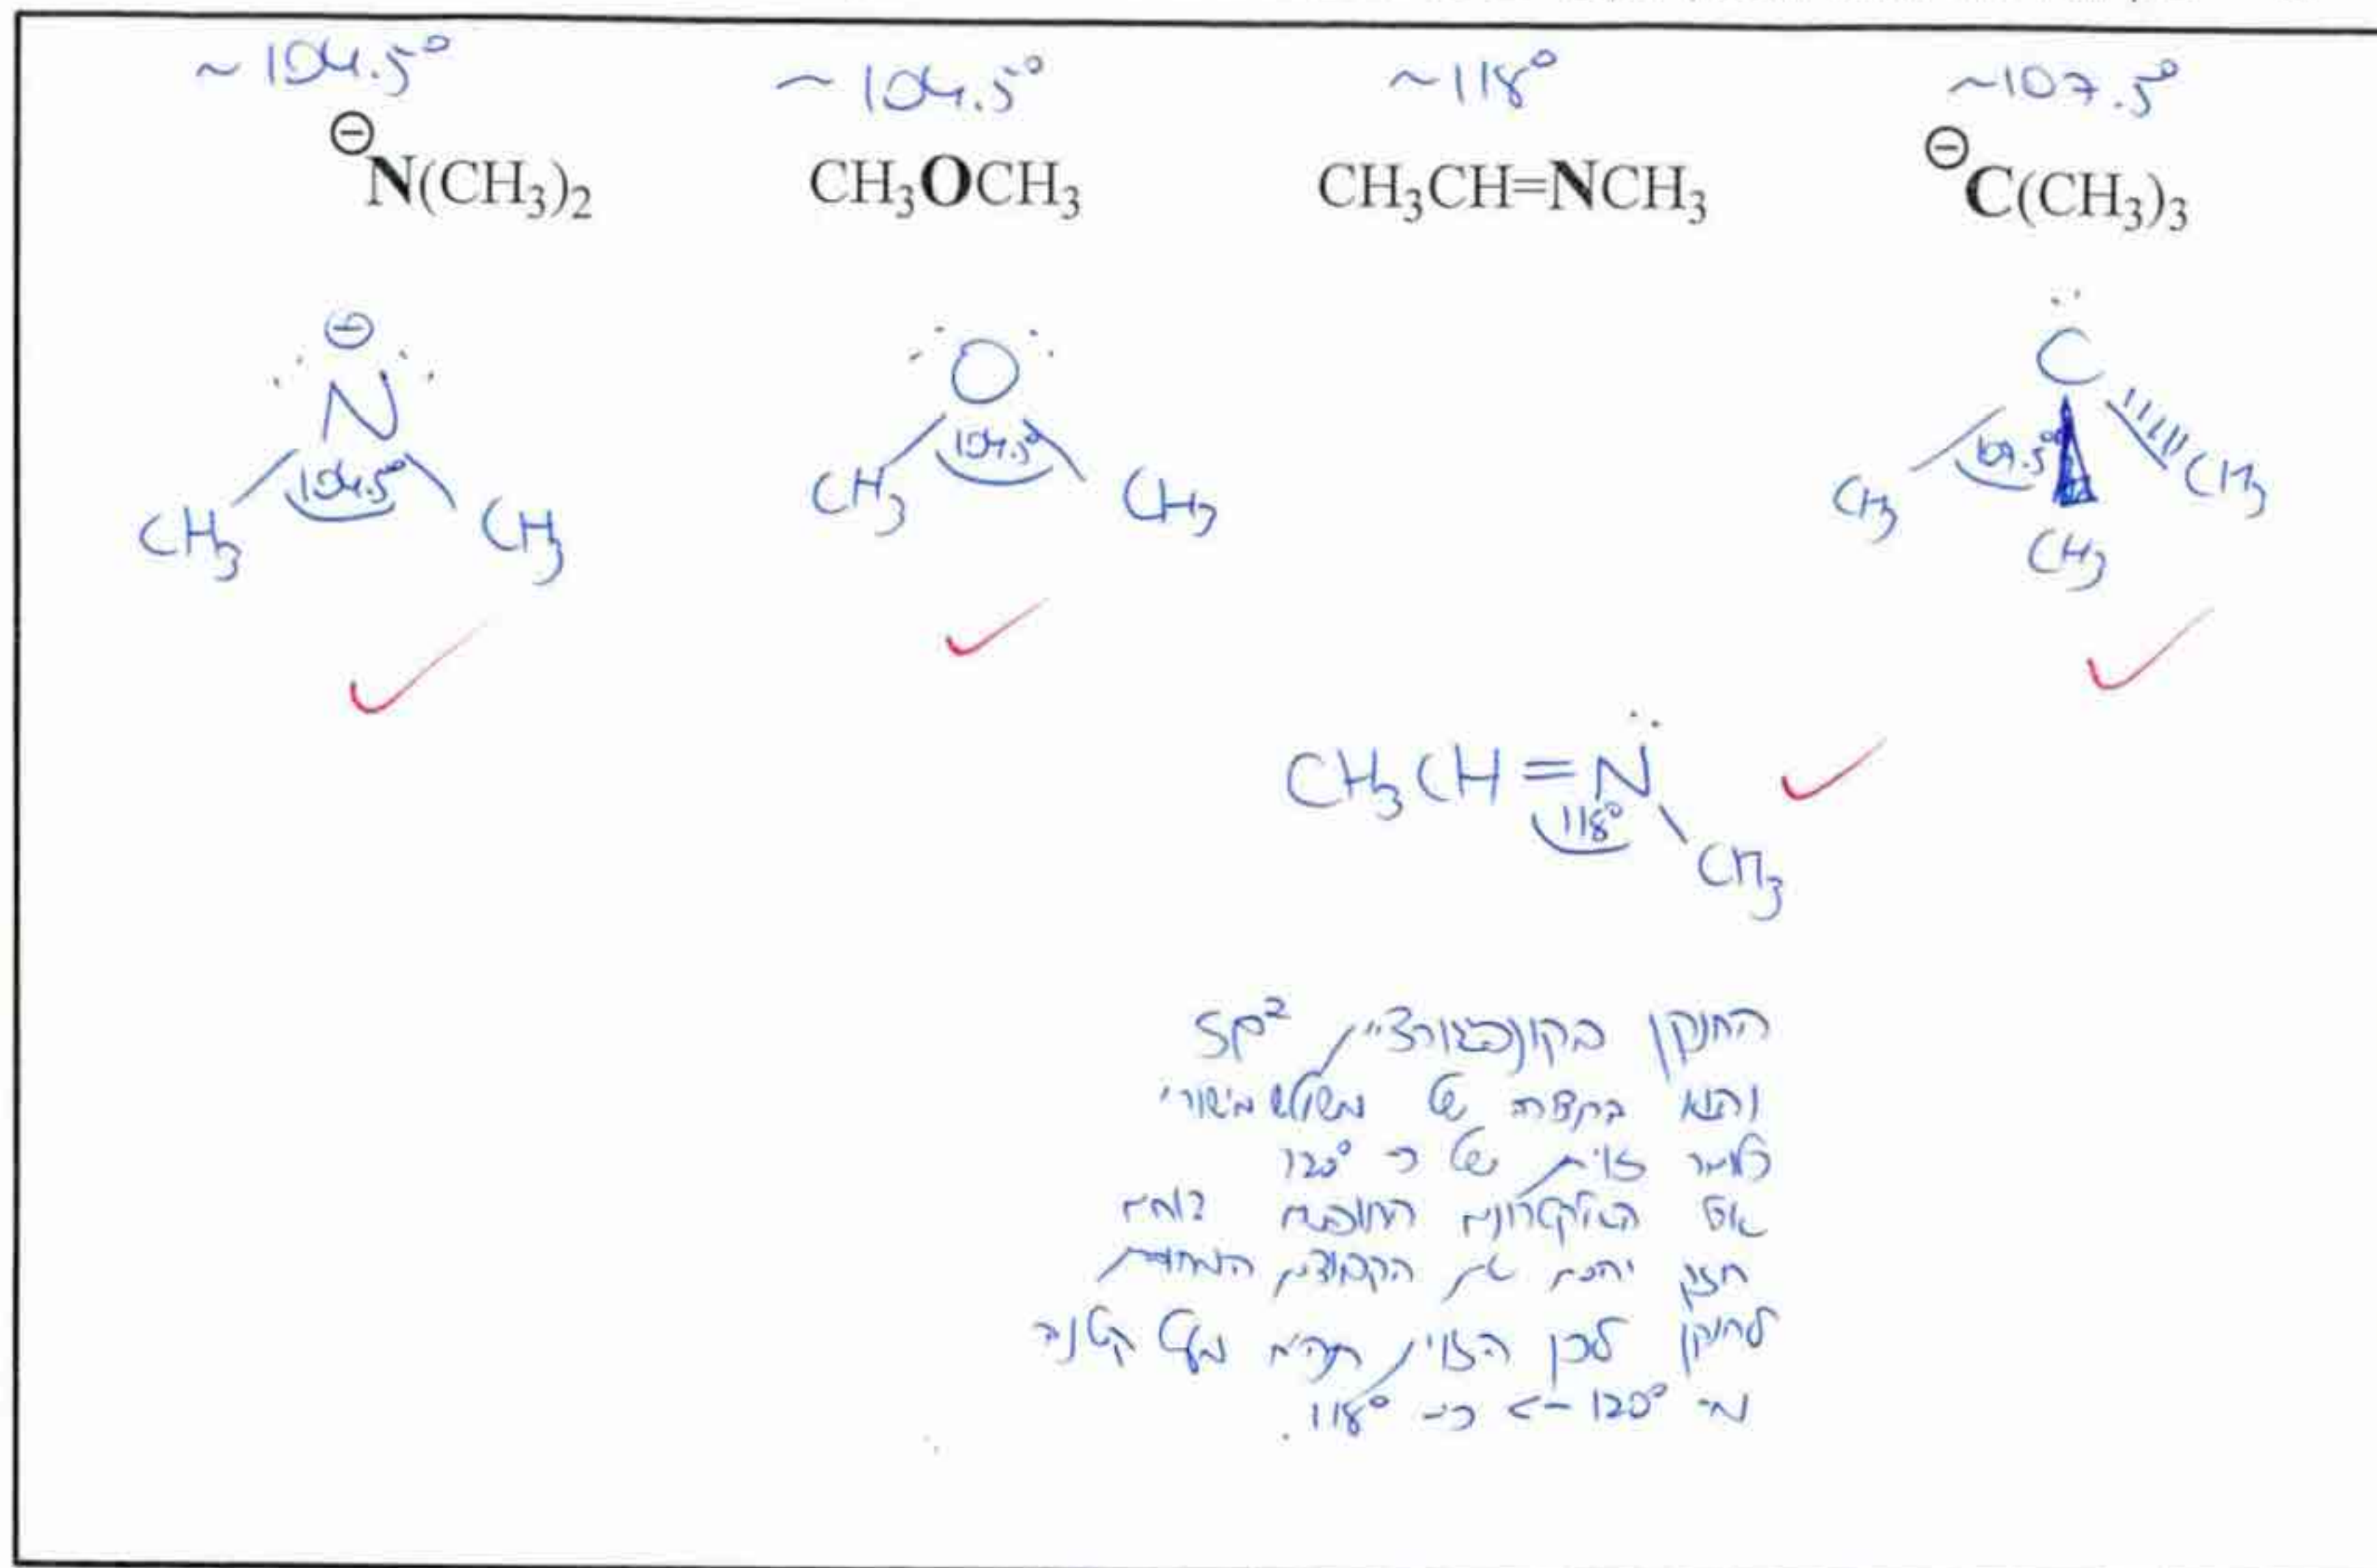 ~104.5° ~104.5° ~118° ~107.5°
⊖N(CH₃)₂ CH₃OCH₃ CH₃CH=NCH₃ ⊖C(CH₃)₃
⊖
N O C
104.5° 104.5°
CH₃ CH₃ CH₃ CH₃ CH₃ CH₃
CH₃
CH₃CH=N
118°
CH₃
החנקן בקונפיגורציית sp²
והוא בקצה של משולש מישורי
כלומר זוית של כ- 120°
אך האלקטרונים החופשיים
את הקבוצות
לחנקן לכן הזוית תהיה מעט קטנה
מ- 120° -> כ- 118°.